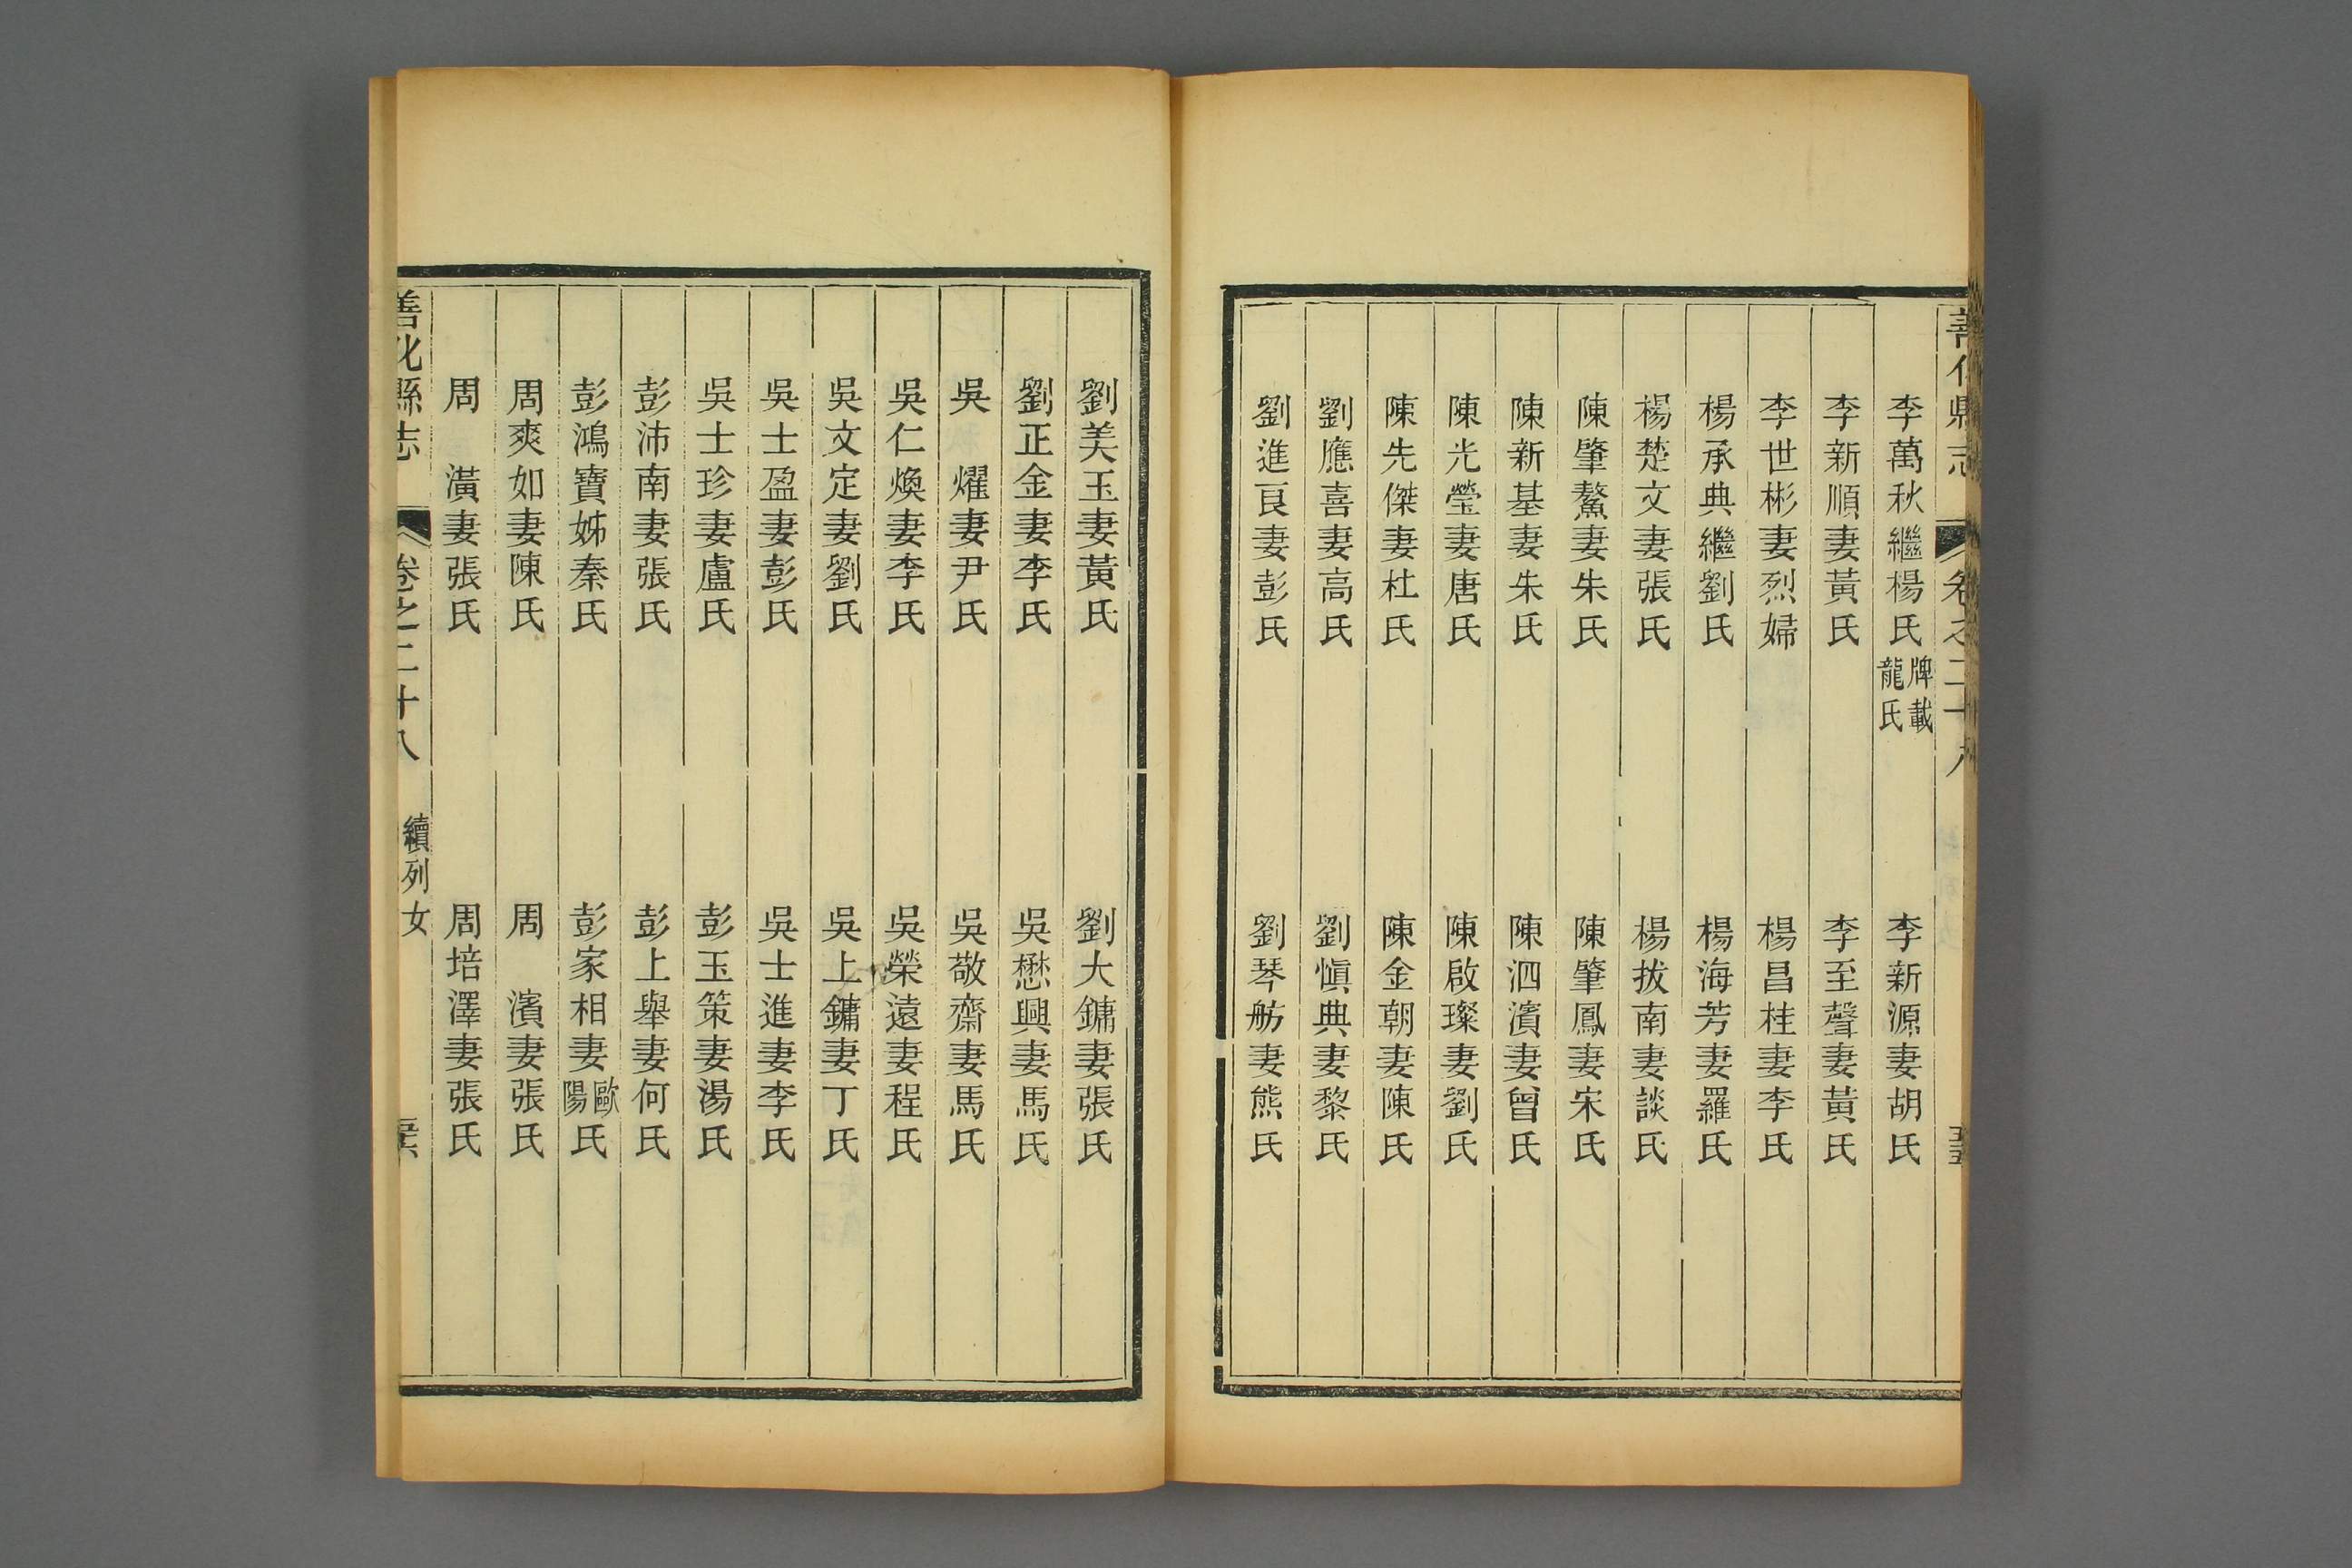 善化縣志
卷之二十八
五五
李萬秋繼楊氏牌載龍氏
李新源妻胡氏
李新順妻黃氏
李至聲妻黃氏
李世彬妻烈婦
楊昌桂妻李氏
楊承典繼劉氏
楊海芳妻羅氏
楊楚文妻張氏
楊拔南妻談氏
陳肇鰲妻朱氏
陳肇鳳妻宋氏
陳新基妻朱氏
陳泗濱妻曾氏
陳光瑩妻唐氏
陳啟璨妻劉氏
陳先傑妻杜氏
陳金朝妻陳氏
劉應喜妻高氏
劉慎典妻黎氏
劉進良妻彭氏
劉琴舫妻熊氏
劉美玉妻黃氏
劉大鏞妻張氏
劉正金妻李氏
吳懋興妻馬氏
吳　燿妻尹氏
吳敬齋妻馬氏
吳仁煥妻李氏
吳榮遠妻程氏
吳文定妻劉氏
吳上鏞妻丁氏
吳士盈妻彭氏
吳士進妻李氏
吳士珍妻盧氏
彭玉策妻湯氏
彭沛南妻張氏
彭上舉妻何氏
彭鴻寶姊秦氏
彭家相妻歐陽氏
周爽如妻陳氏
周　濱妻張氏
周　潢妻張氏
周培澤妻張氏
善化縣志
卷之二十八
續列女